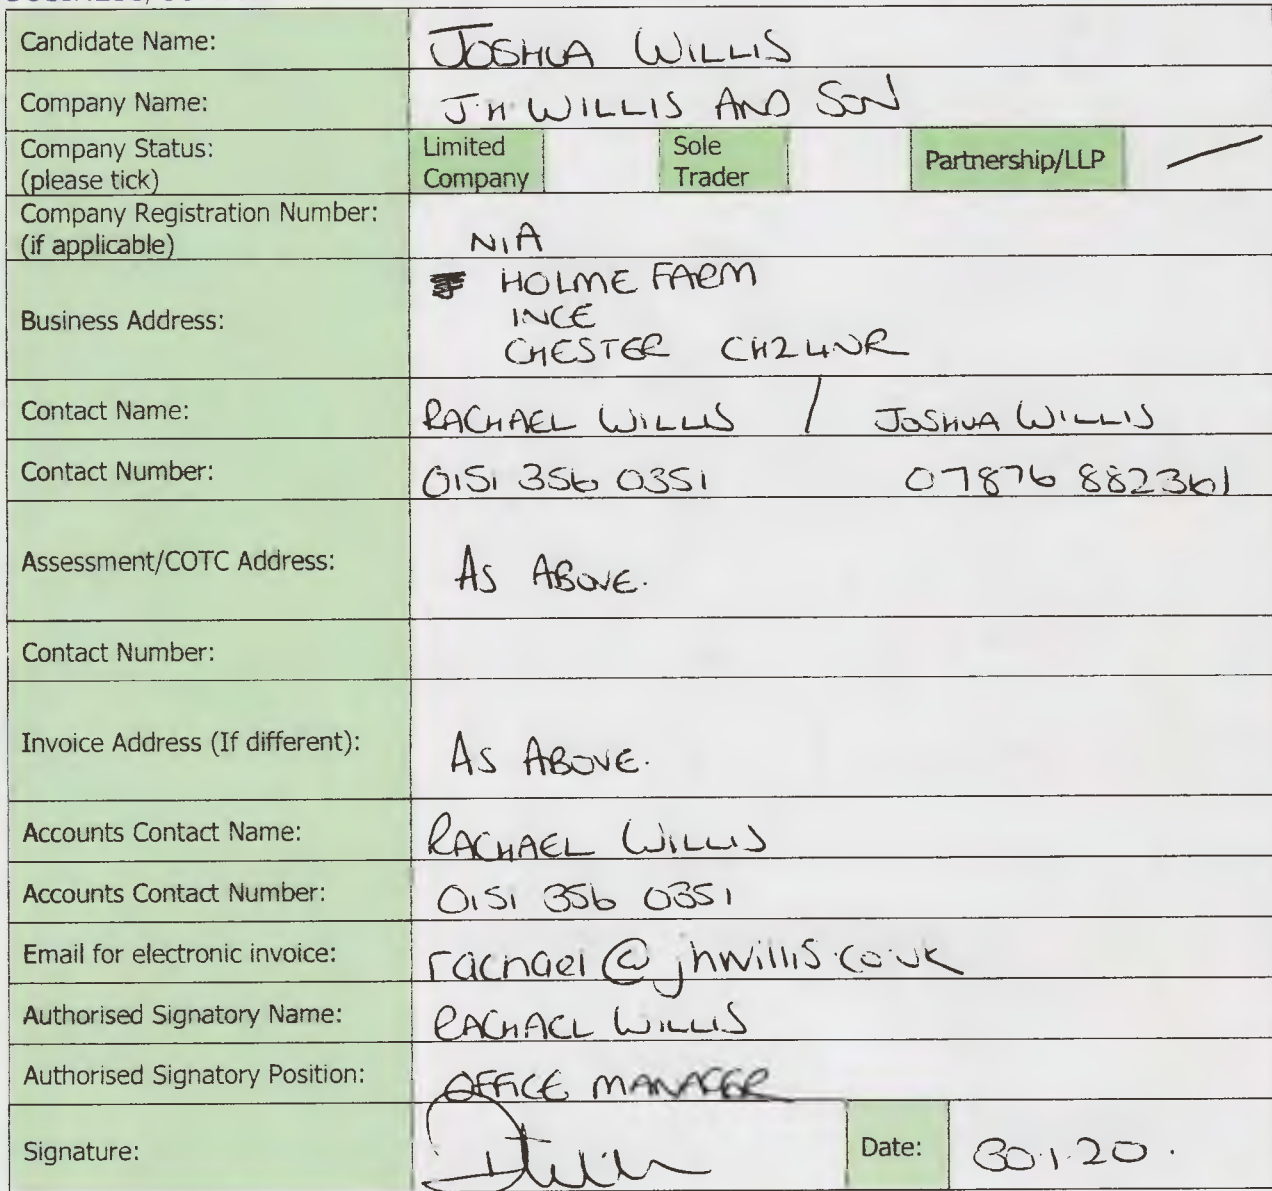 Candidate Name: JOSHUA WILLIS
Company Name: J.H. WILLIS AND SON
Company Status: Limited Sole Partnership/LLP
(please tick) Company Trader
Company Registration Number:
(if applicable) N/A
HOLME FARM
Business Address: INCE
CHESTER CH2 4NR
Contact Name: RACHAEL WILLIS / JOSHUA WILLIS
Contact Number: 0151 356 0351 07876 882361
Assessment/COTC Address: AS ABOVE.
Contact Number:
Invoice Address (If different): AS ABOVE.
Accounts Contact Name: RACHAEL WILLIS
Accounts Contact Number: 0151 356 0351
Email for electronic invoice: rachael@jhwillis.co.uk
Authorised Signatory Name: RACHAEL WILLIS
Authorised Signatory Position: OFFICE MANAGER
Signature: Date: 30.1.20.